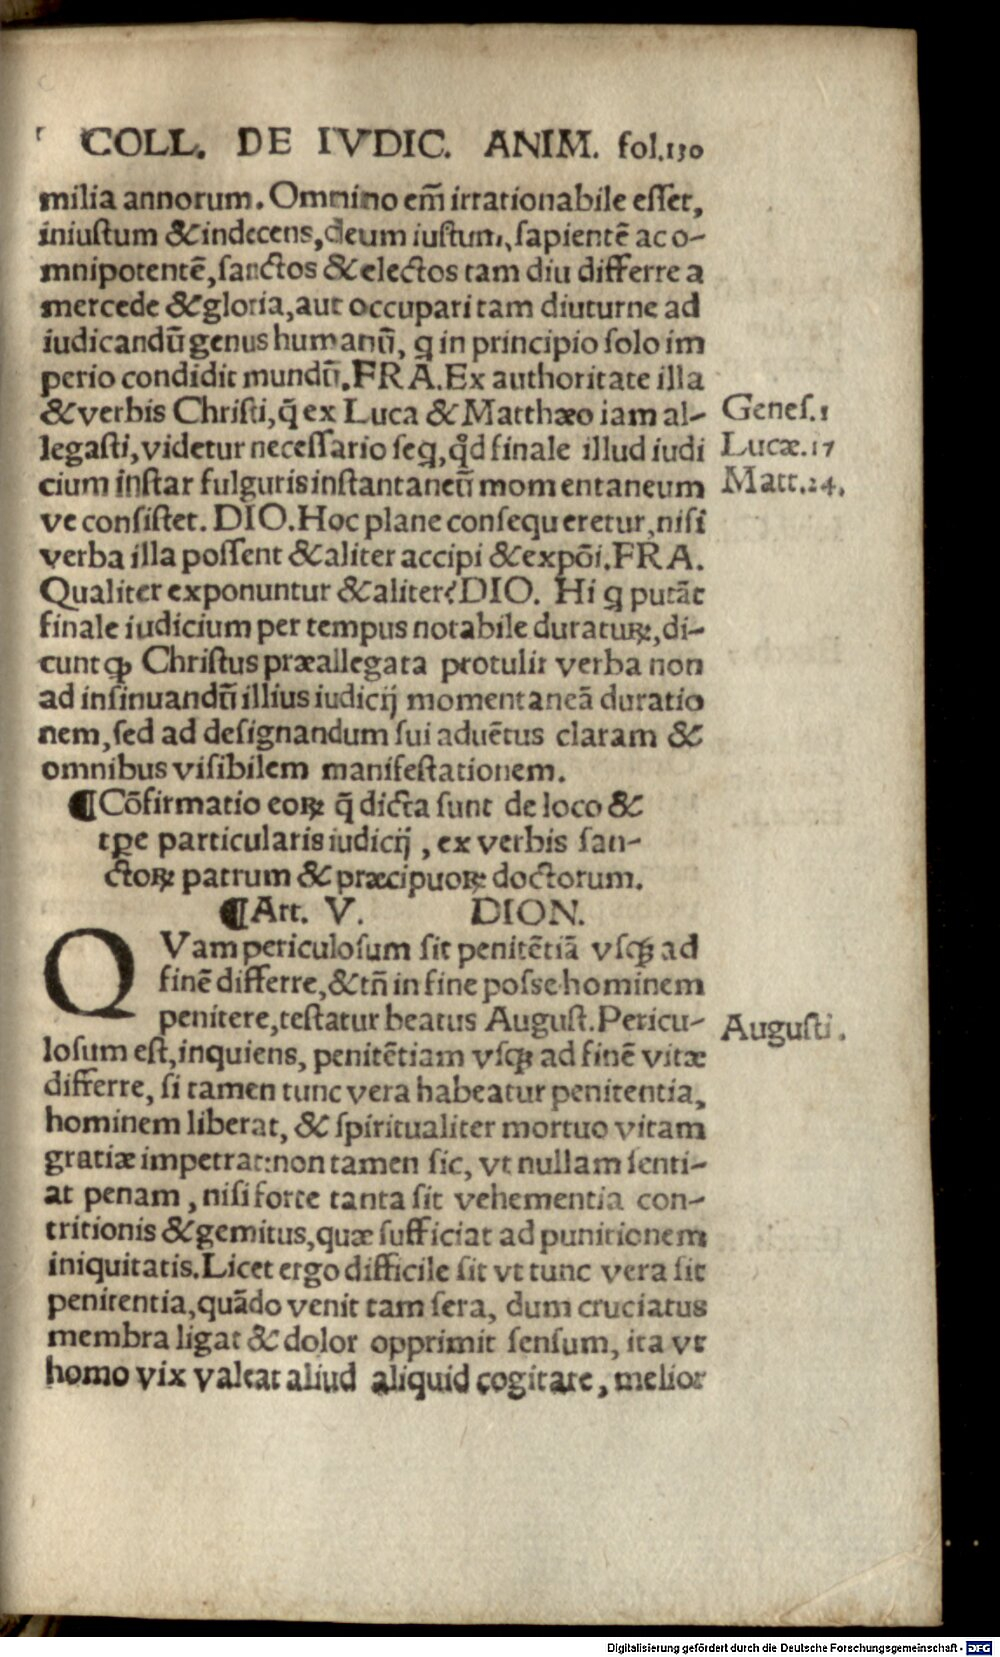 COLL. DE IVDIC. ANIM. fol.130
milia annorum. Omnino em̃ irrationabile esset,
iniustum & indecens, deum iustum, sapientẽ ac o-
mnipotentẽ, sanctos & electos tam diu differre a
mercede & gloria, aut occupari tam diuturne ad
iudicandũ genus humanũ, q in principio solo im
perio condidit mundũ. FRA. Ex authoritate illa
& verbis Christi, q̃ ex Luca & Matthæo iam al-
legasti, videtur necessario seq, qd̃ finale illud iudi
cium instar fulguris instantaneũ momentaneum
ve consistet. DIO. Hoc plane consequeretur, nisi
verba illa possent & aliter accipi & expõi. FRA.
Qualiter exponuntur & aliter? DIO. Hi q putãt
finale iudicium per tempus notabile duraturꝝ, di-
cunt ꝙ Christus præallegata protulit verba non
ad insinuandũ illius iudicij momentaneã duratio
nem, sed ad designandum sui aduẽtus claram &
omnibus visibilem manifestationem.
¶ Cõfirmatio eoꝝ q̃ dicta sunt de loco &
tꝑe particularis iudicij, ex verbis san-
ctoꝝ patrum & præcipuoꝝ doctorum.
¶ Art. V. DION.
QVam periculosum sit penitẽtiã vsqꝫ ad
finẽ differre, & tñ in fine posse hominem
penitere, testatur beatus August. Pericu-
losum est, inquiens, penitẽtiam vsqꝫ ad finẽ vitæ
differre, si tamen tunc vera habeatur penitentia,
hominem liberat, & spiritualiter mortuo vitam
gratiæ impetrat: non tamen sic, vt nullam senti-
at penam, nisi forte tanta sit vehementia con-
tritionis & gemitus, quæ sufficiat ad punitionem
iniquitatis. Licet ergo difficile sit vt tunc vera sit
penitentia, quãdo venit tam sera, dum cruciatus
membra ligat & dolor opprimit sensum, ita vt
homo vix valeat aliud aliquid cogitare, melior
Genes.1
Lucæ.17
Matt.24.
Augusti.
Digitalisierung gefördert durch die Deutsche Forschungsgemeinschaft - DFG